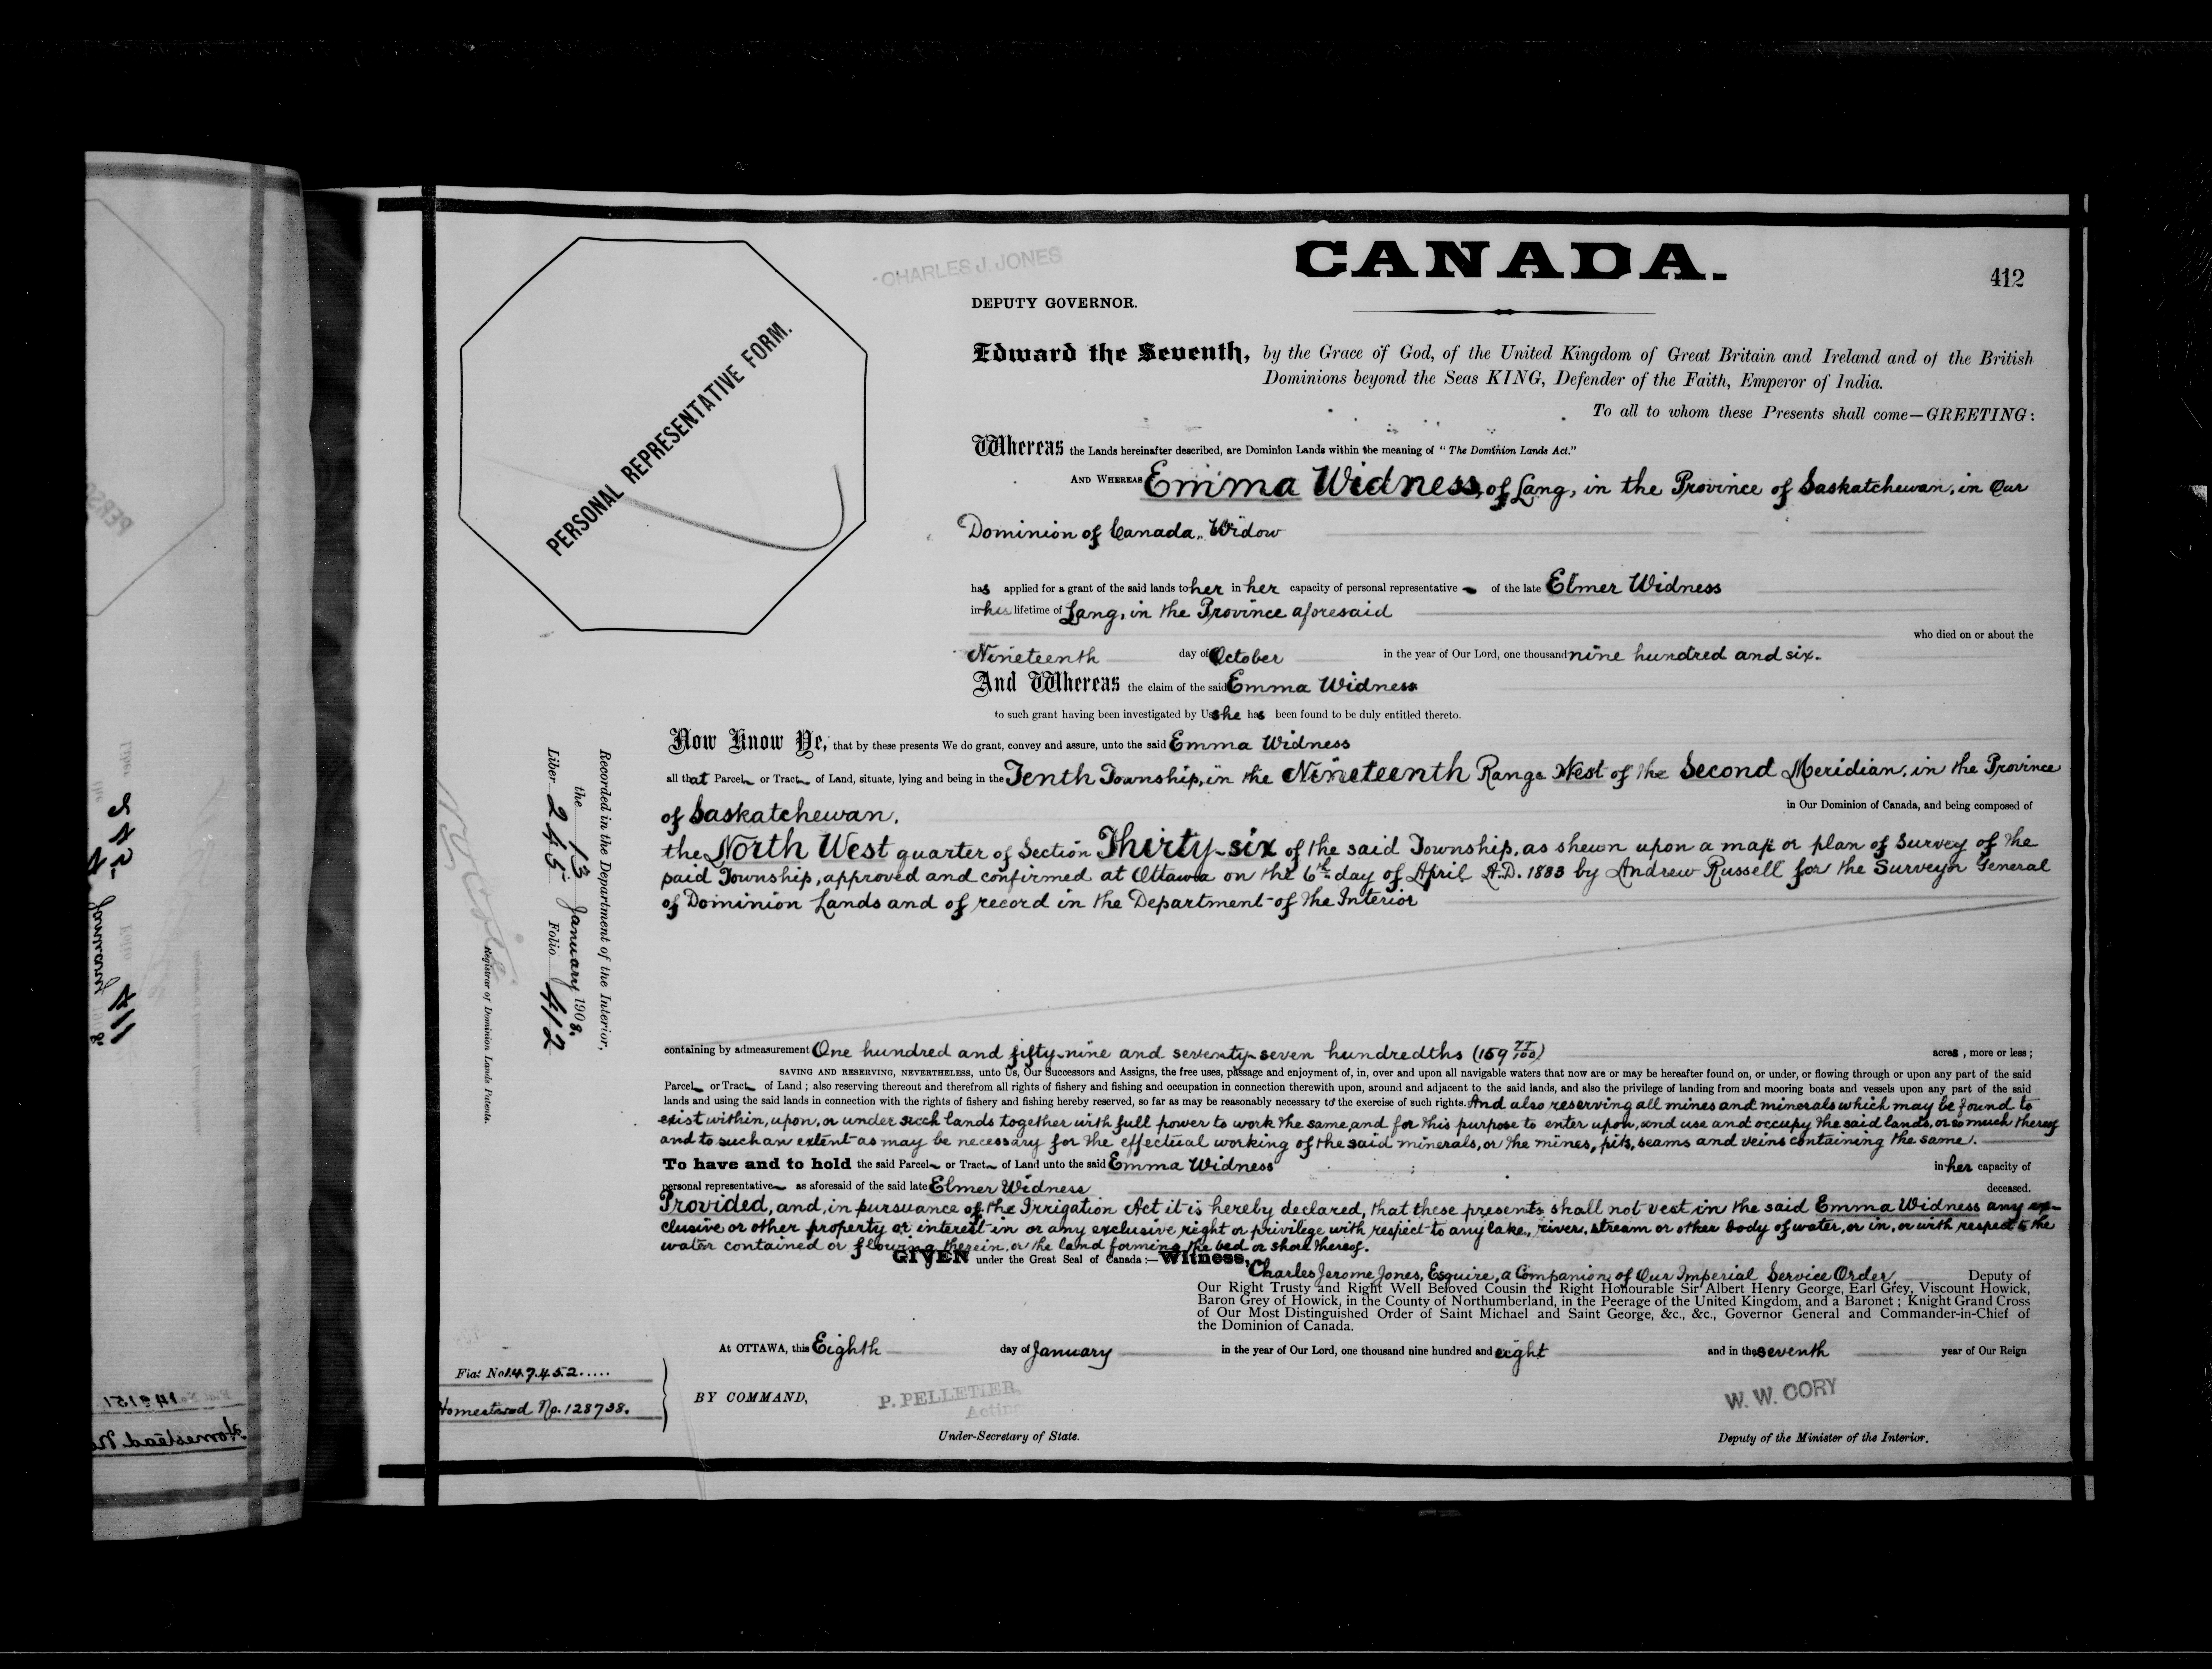 CHARLES J. JONES
CANADA.
412
DEPUTY GOVERNOR.
PERSONAL REPRESENTATIVE FORM.
Edward the Seventh, by the Grace of God, of the United Kingdom of Great Britain and Ireland and of the British
Dominions beyond the Seas KING, Defender of the Faith, Emperor of India.
To all to whom these Presents shall come—GREETING:
Whereas the Lands hereinafter described, are Dominion Lands within the meaning of "The Dominion Lands Act."
AND WHEREAS Emma Widness, of Lang, in the Province of Saskatchewan, in Our
Dominion of Canada, Widow
has applied for a grant of the said lands to her in her capacity of personal representative of the late Elmer Widness
in his lifetime of Lang, in the Province aforesaid
who died on or about the
Nineteenth day of October in the year of Our Lord, one thousand nine hundred and six.
And Whereas the claim of the said Emma Widness
to such grant having been investigated by Us she has been found to be duly entitled thereto.
Now Know Ye, that by these presents We do grant, convey and assure, unto the said Emma Widness
all that Parcel or Tract of Land, situate, lying and being in the Tenth Township, in the Nineteenth Range West of the Second Meridian, in the Province
of Saskatchewan, in Our Dominion of Canada, and being composed of
the North West quarter of Section Thirty-six of the said Township, as shewn upon a map or plan of Survey of the
said Township, approved and confirmed at Ottawa on the 6th day of April A.D. 1883 by Andrew Russell for the Surveyor General
of Dominion Lands and of record in the Department of the Interior
Recorded in the Department of the Interior,
the 13 January 1908.
Liber 245 Folio 412
Registrar of Dominion Lands Patents.
containing by admeasurement One hundred and fifty-nine and seventy-seven hundredths (159 77/100) acres, more or less;
SAVING AND RESERVING, NEVERTHELESS, unto Us, Our Successors and Assigns, the free uses, passage and enjoyment of, in, over and upon all navigable waters that now are or may be hereafter found on, or under, or flowing through or upon any part of the said
Parcel or Tract of Land; also reserving thereout and therefrom all rights of fishery and fishing and occupation in connection therewith upon, around and adjacent to the said lands, and also the privilege of landing from and mooring boats and vessels upon any part of the said
lands and using the said lands in connection with the rights of fishery and fishing hereby reserved, so far as may be reasonably necessary to the exercise of such rights. And also reserving all mines and minerals which may be found to
exist within, upon, or under such lands together with full power to work the same, and for this purpose to enter upon, and use and occupy the said lands, or so much thereof
and to such an extent as may be necessary for the effectual working of the said minerals, or the mines, pits, seams and veins containing the same.
To have and to hold the said Parcel or Tract of Land unto the said Emma Widness in her capacity of
personal representative as aforesaid of the said late Elmer Widness deceased.
Provided, and, in pursuance of the Irrigation Act it is hereby declared, that these presents shall not vest in the said Emma Widness any ex-
clusive or other property or interest in or any exclusive right or privilege with respect to any lake, river, stream or other body of water, or in, or with respect to the
water contained or flowing therein, or the land forming the bed or shore thereof.
GIVEN under the Great Seal of Canada:—Witness,
Charles Jerome Jones, Esquire, a Companion of Our Imperial Service Order, Deputy of
Our Right Trusty and Right Well Beloved Cousin the Right Honourable Sir Albert Henry George, Earl Grey, Viscount Howick,
Baron Grey of Howick, in the County of Northumberland, in the Peerage of the United Kingdom, and a Baronet; Knight Grand Cross
of Our Most Distinguished Order of Saint Michael and Saint George, &c., &c., Governor General and Commander-in-Chief of
the Dominion of Canada.
At OTTAWA, this Eighth day of January in the year of Our Lord, one thousand nine hundred and eight and in the seventh year of Our Reign
Fiat No 147452.....
Homestead No. 128738.
BY COMMAND,
P. PELLETIER,
Acting
Under-Secretary of State.
W. W. CORY
Deputy of the Minister of the Interior.